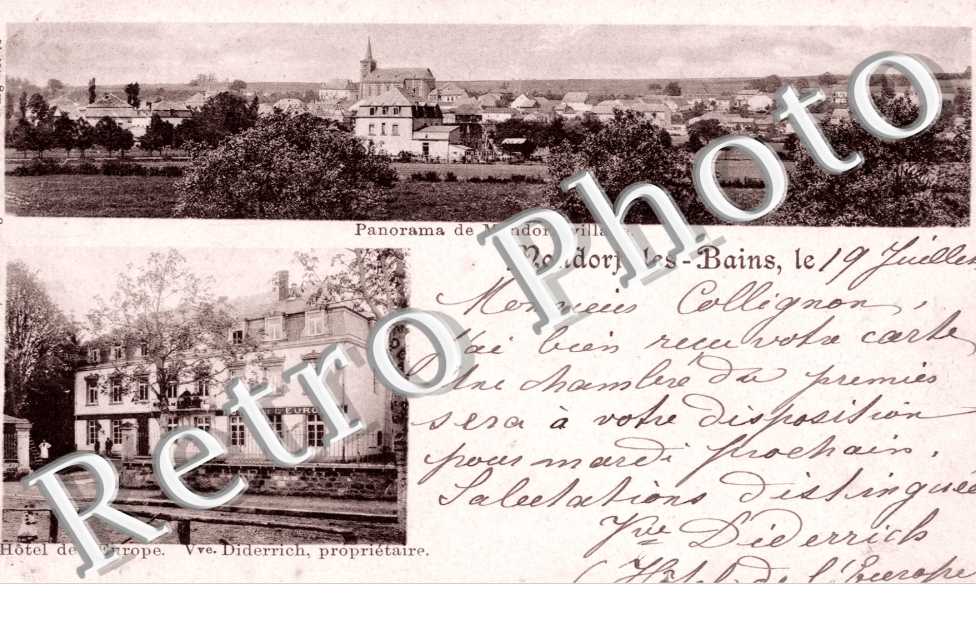 Panorama de Mondorf-village.
Mondorf-les-Bains, le 19 Juillet
Monsieur Collignon,
J'ai bien reçu votre carte
Une chambre du premier
sera à votre disposition
pour mardi prochain.
Salutations distinguées
Vve Diderrich
Hôtel de l'Europe
L'EUROPE
Hôtel de l'Europe. Vve. Diderrich, propriétaire.
Retro Photo